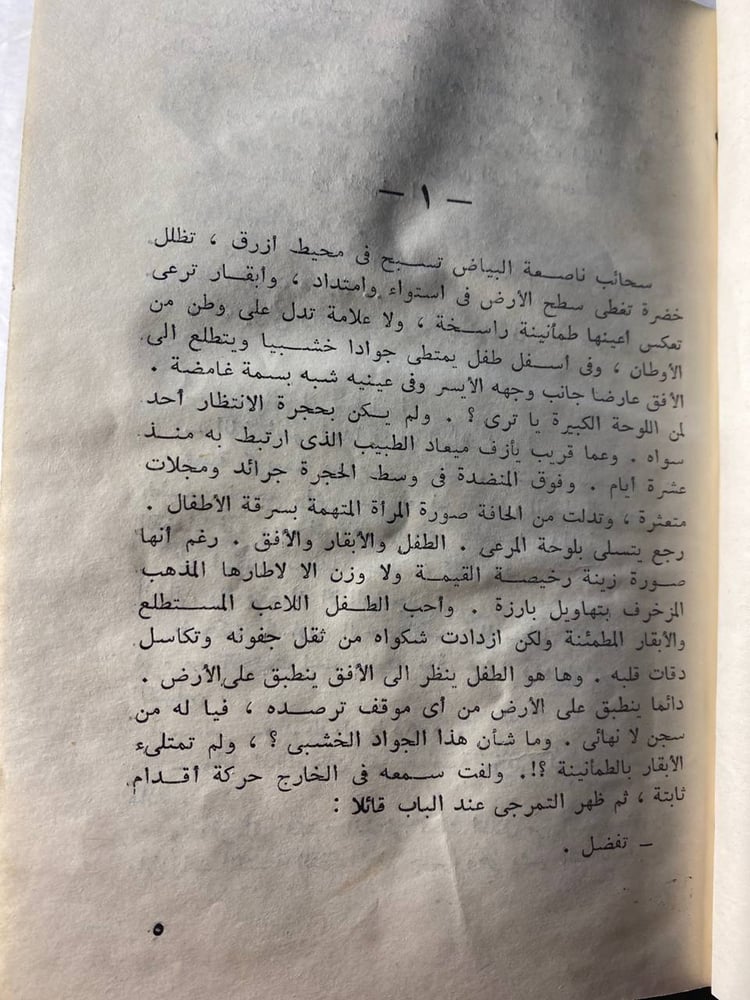 — ١ —
سحائب ناصعة البياض تسبح فى محيط أزرق ، تظلل
خضرة تغطى سطح الأرض فى استواء وامتداد ، وأبقار ترعى
تعكس أعينها طمأنينة راسخة ، ولا علامة تدل على وطن من
الأوطان ، وفى أسفل طفل يمتطى جوادا خشبيا ويتطلع الى
الأفق عارضا جانب وجهه الأيسر وفى عينيه شبه بسمة غامضة .
لمن اللوحة الكبيرة يا ترى ؟ . ولم يكن بحجرة الانتظار أحد
سواه . وعما قريب يأزف ميعاد الطبيب الذى ارتبط به منذ
عشرة أيام . وفوق المنضدة فى وسط الحجرة جرائد ومجلات
متعثرة ، وتدلت من الحافة صورة المرأة المتهمة بسرقة الأطفال .
رجع يتسلى بلوحة المرعى . الطفل والأبقار والأفق . رغم أنها
صورة زينة رخيصة القيمة ولا وزن الا لاطارها المذهب
المزخرف بتهاويل بارزة . وأحب الطفل اللاعب المستطلع
والأبقار المطمئنة ولكن ازدادت شكواه من ثقل جفونه وتكاسل
دقات قلبه . وها هو الطفل ينظر الى الأفق ينطبق على الأرض .
دائما ينطبق على الأرض من أى موقف ترصده ، فيا له من
سجن لا نهائى . وما شأن هذا الجواد الخشبى ؟ ، ولم تمتلىء
الأبقار بالطمأنينة ؟! . ولفت سمعه فى الخارج حركة أقدام
ثابتة ، ثم ظهر التمرجى عند الباب قائلا :
— تفضل .
٥